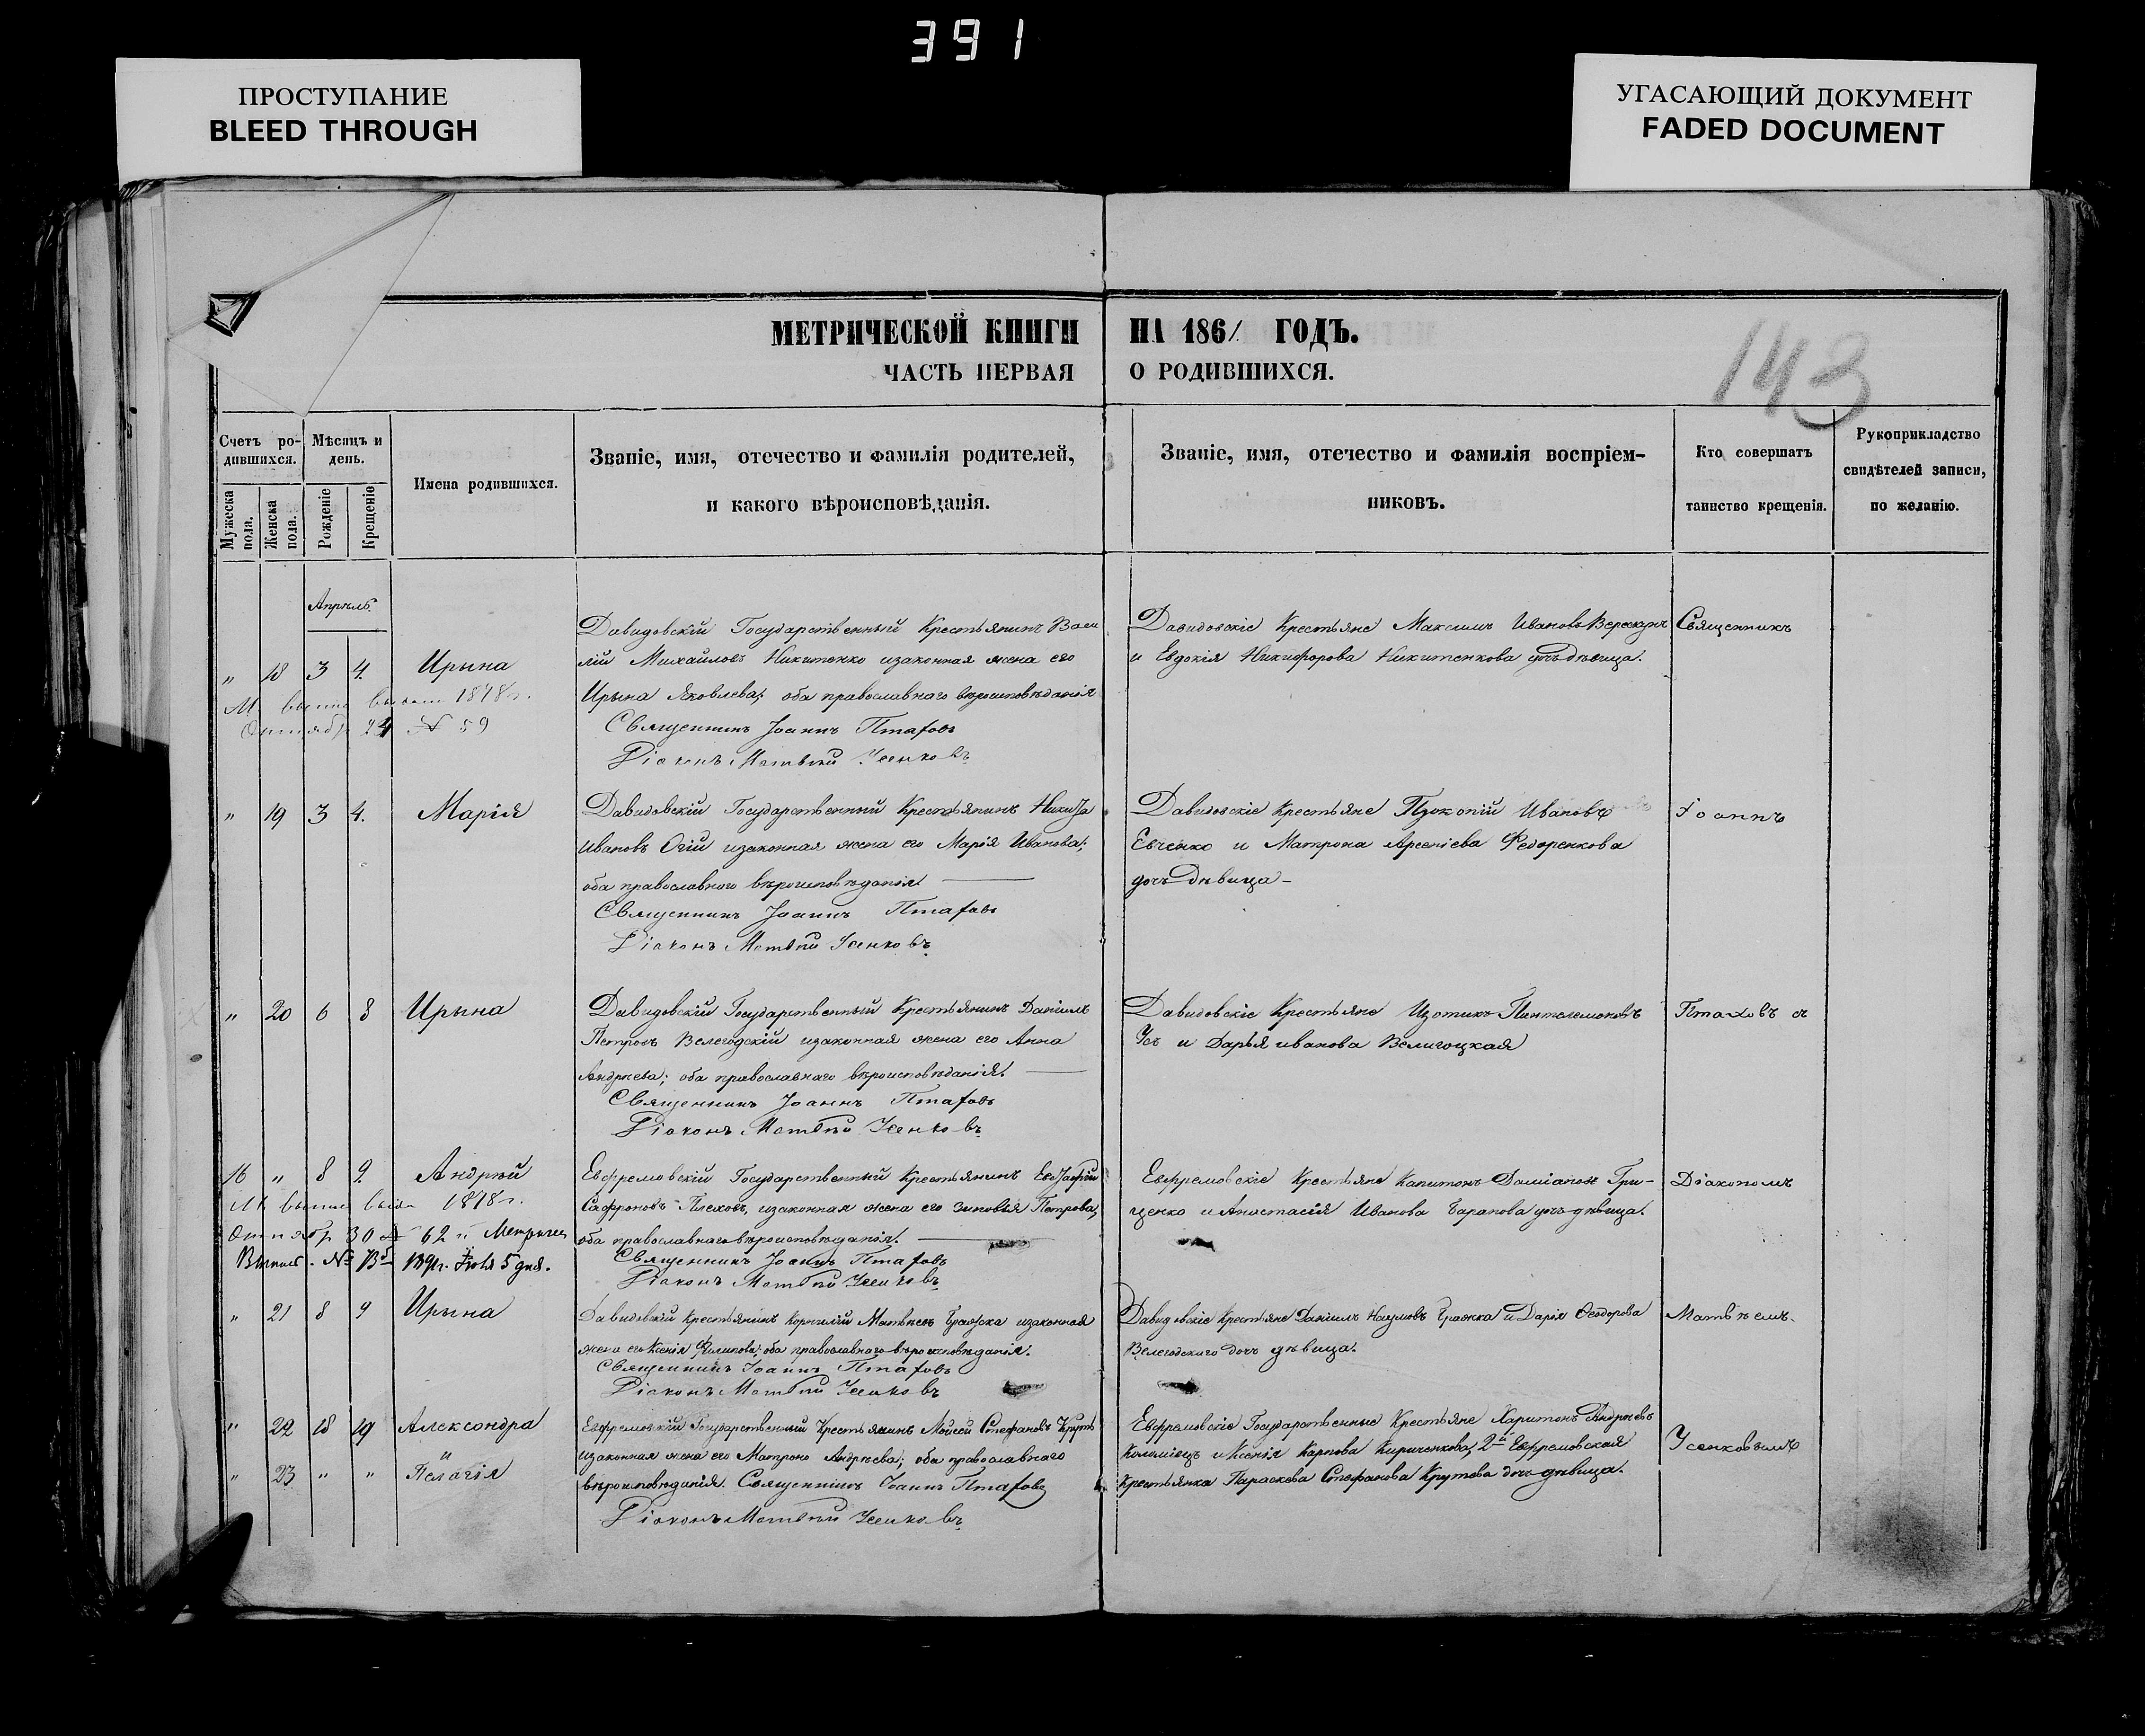 391
ПРОСТУПАНИЕ
BLEED THROUGH
УГАСАЮЩИЙ ДОКУМЕНТ
FADED DOCUMENT
МЕТРИЧЕСКОЙ КНИГИ НА 1861 ГОДЪ.
ЧАСТЬ ПЕРВАЯ О РОДИВШИХСЯ.
143
Счетъ ро-
дившихся.
Мужеска
пола.
Женска
пола.
Мѣсяцъ и
день.
Рожденіе
Крещеніе
Имена родившихся.
Званіе, имя, отечество и фамилія родителей,
и какого вѣроисповѣданія.
Званіе, имя, отечество и фамилія воспріем-
никовъ.
Кто совершатъ
таинство крещенія.
Рукоприкладство
свидѣтелей записи,
по желанію.
Апрѣль
„ 18 3 4. Ирына
1878 г.
24 № 59
Давидовскій Государственный Крестьянинъ Васи
лій Михайловъ Никитенко изаконная жена его
Ирына Яковлева; оба православнаго вѣроисповѣданія
Священникъ Іоаннъ Птаховъ
Діаконъ Матвѣй Усенковъ
Давидовскіе Крестьяне Максимъ Ивановъ
и Евдокія Никифорова Никитенкова дочь дѣвица.
Священникъ
„ 19 3 4. Марія
Давидовскій Государственный Крестьянинъ Никита
Ивановъ Огій изаконная жена его Марія Иванова;
оба православнаго вѣроисповѣданія.
Священникъ Іоаннъ Птаховъ
Діаконъ Матвѣй Усенковъ
Давидовскіе Крестьяне Прокопій Ивановъ
Евченко и Матрона Арсеніева Федоренкова
дочь дѣвица –
Іоаннъ
„ 20 6 8 Ирына
Давидовскій Государственный Крестьянинъ Даніилъ
Петровъ Велегодскій изаконная жена его Анна
Андреева; оба православнаго вѣроисповѣданія.
Священникъ Іоаннъ Птаховъ
Діаконъ Матвѣй Усенковъ
Давидовскіе Крестьяне Изотикъ Пантелемоновъ
Усъ и Дарья иванова Велигоцкая
Птаховъ съ
16 „ 8 9 Андрѣй
1878 г.
30 № 62 и
5 дня.
Евфремовскій Государственный Крестьянинъ Евстафій
Сафроновъ Плеховъ, изаконная жена его Зиновія Петрова,
оба православнаго вѣроисповѣданія.
Священникъ Іоаннъ Птаховъ
Діаконъ Матвѣй Усенковъ
Евфремовскіе Крестьяне Капитонъ Даміановъ Гри-
ценко и Анастасія Иванова Баранова дочь дѣвица.
Діакономъ
„ 21 8 9 Ирына
Давидовскій Крестьянинъ Корнилій Матвѣевъ Бражка изаконная
жена его Ксенія Филипова; оба православнаго вѣроисповѣданія.
Священникъ Іоаннъ Птаховъ
Діаконъ Матвѣй Усенковъ
Давидовскіе Крестьяне Даніилъ Наумовъ Бражка и Дарія Феодорова
Велегодскаго дочь дѣвица.
Матвѣемъ
„ 22 18 19 Александра
и
„ 23 „ „ Пелагія
Евфремовскій Государственный Крестьянинъ Моисей Стефановъ Крутъ
изаконная жена его Матрона Андреева; оба православнаго
вѣроисповѣданія. Священникъ Іоаннъ Птаховъ
Діаконъ Матвѣй Усенковъ
Евфремовскіе Государственные Крестьяне Харитонъ Андреевъ
Коломіецъ и Ксенія Карпова Кириченкова, 2й Евфремовская
Крестьянка Параскева Стефанова Крутова дочь дѣвица.
Усенковымъ